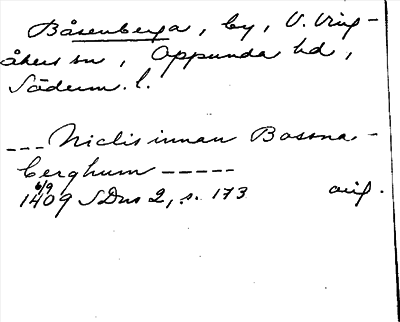 Båsenberga, by, V. Ving-
åkers sn, Oppunda hd,
Söderm. l.
--- Niclis innan Bossna-
berghum -----
6/9
1409 SDns 2, s. 173 orig.